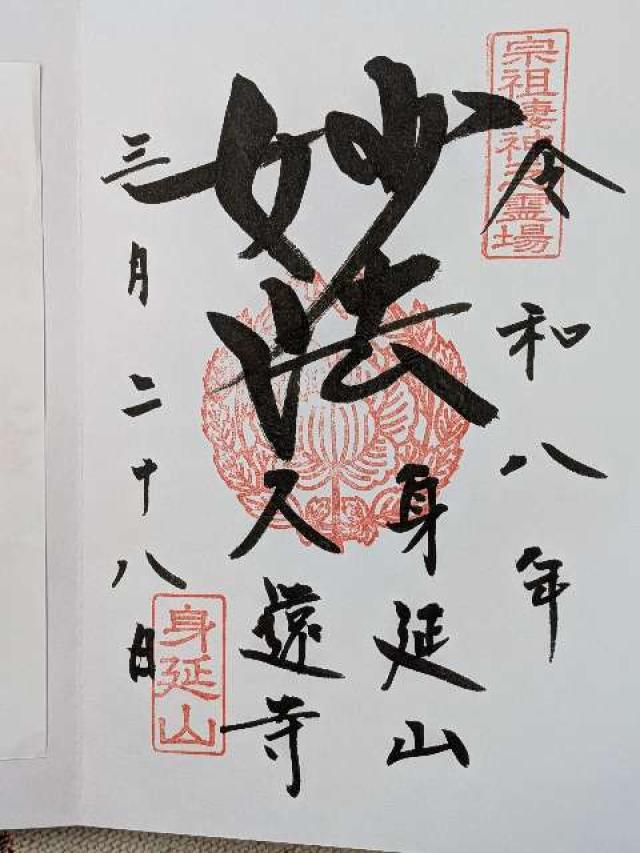 宗祖棲神之霊場
令和八年
妙法
身延山
久遠寺
三月二十八日
身延山